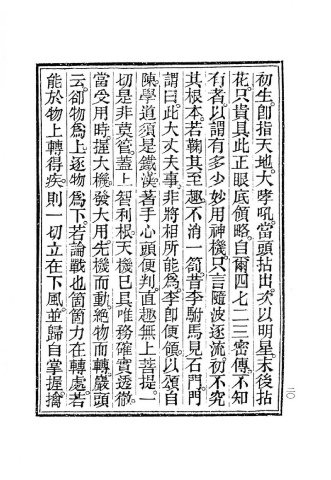 初生。卽指天地。大哮吼。當頭拈出。次以明星。末後拈
花。只貴具此正眼底領略。自爾四七二三密傳。不知
有者。以謂有多少妙用神機。只言隨波逐流。初不究
其根本。若鞠其至趣。不消一箚。昔李駙馬見石門。門
謂曰。此大丈夫事。非將相所能爲。李卽便領。以頌自
陳。學道須是鐵漢。著手心頭便判。直趣無上菩提。一
切是非莫管。蓋上智利根。天機已具。唯務確實透徹。
當受用時。握大機。發大用。先機而動。絶物而轉。巖頭
云。卻物爲上。逐物爲下。若論戰也。箇箇力在轉處。若
能於物上轉得疾。則一切立在下風。並歸自掌握。擒
二〇